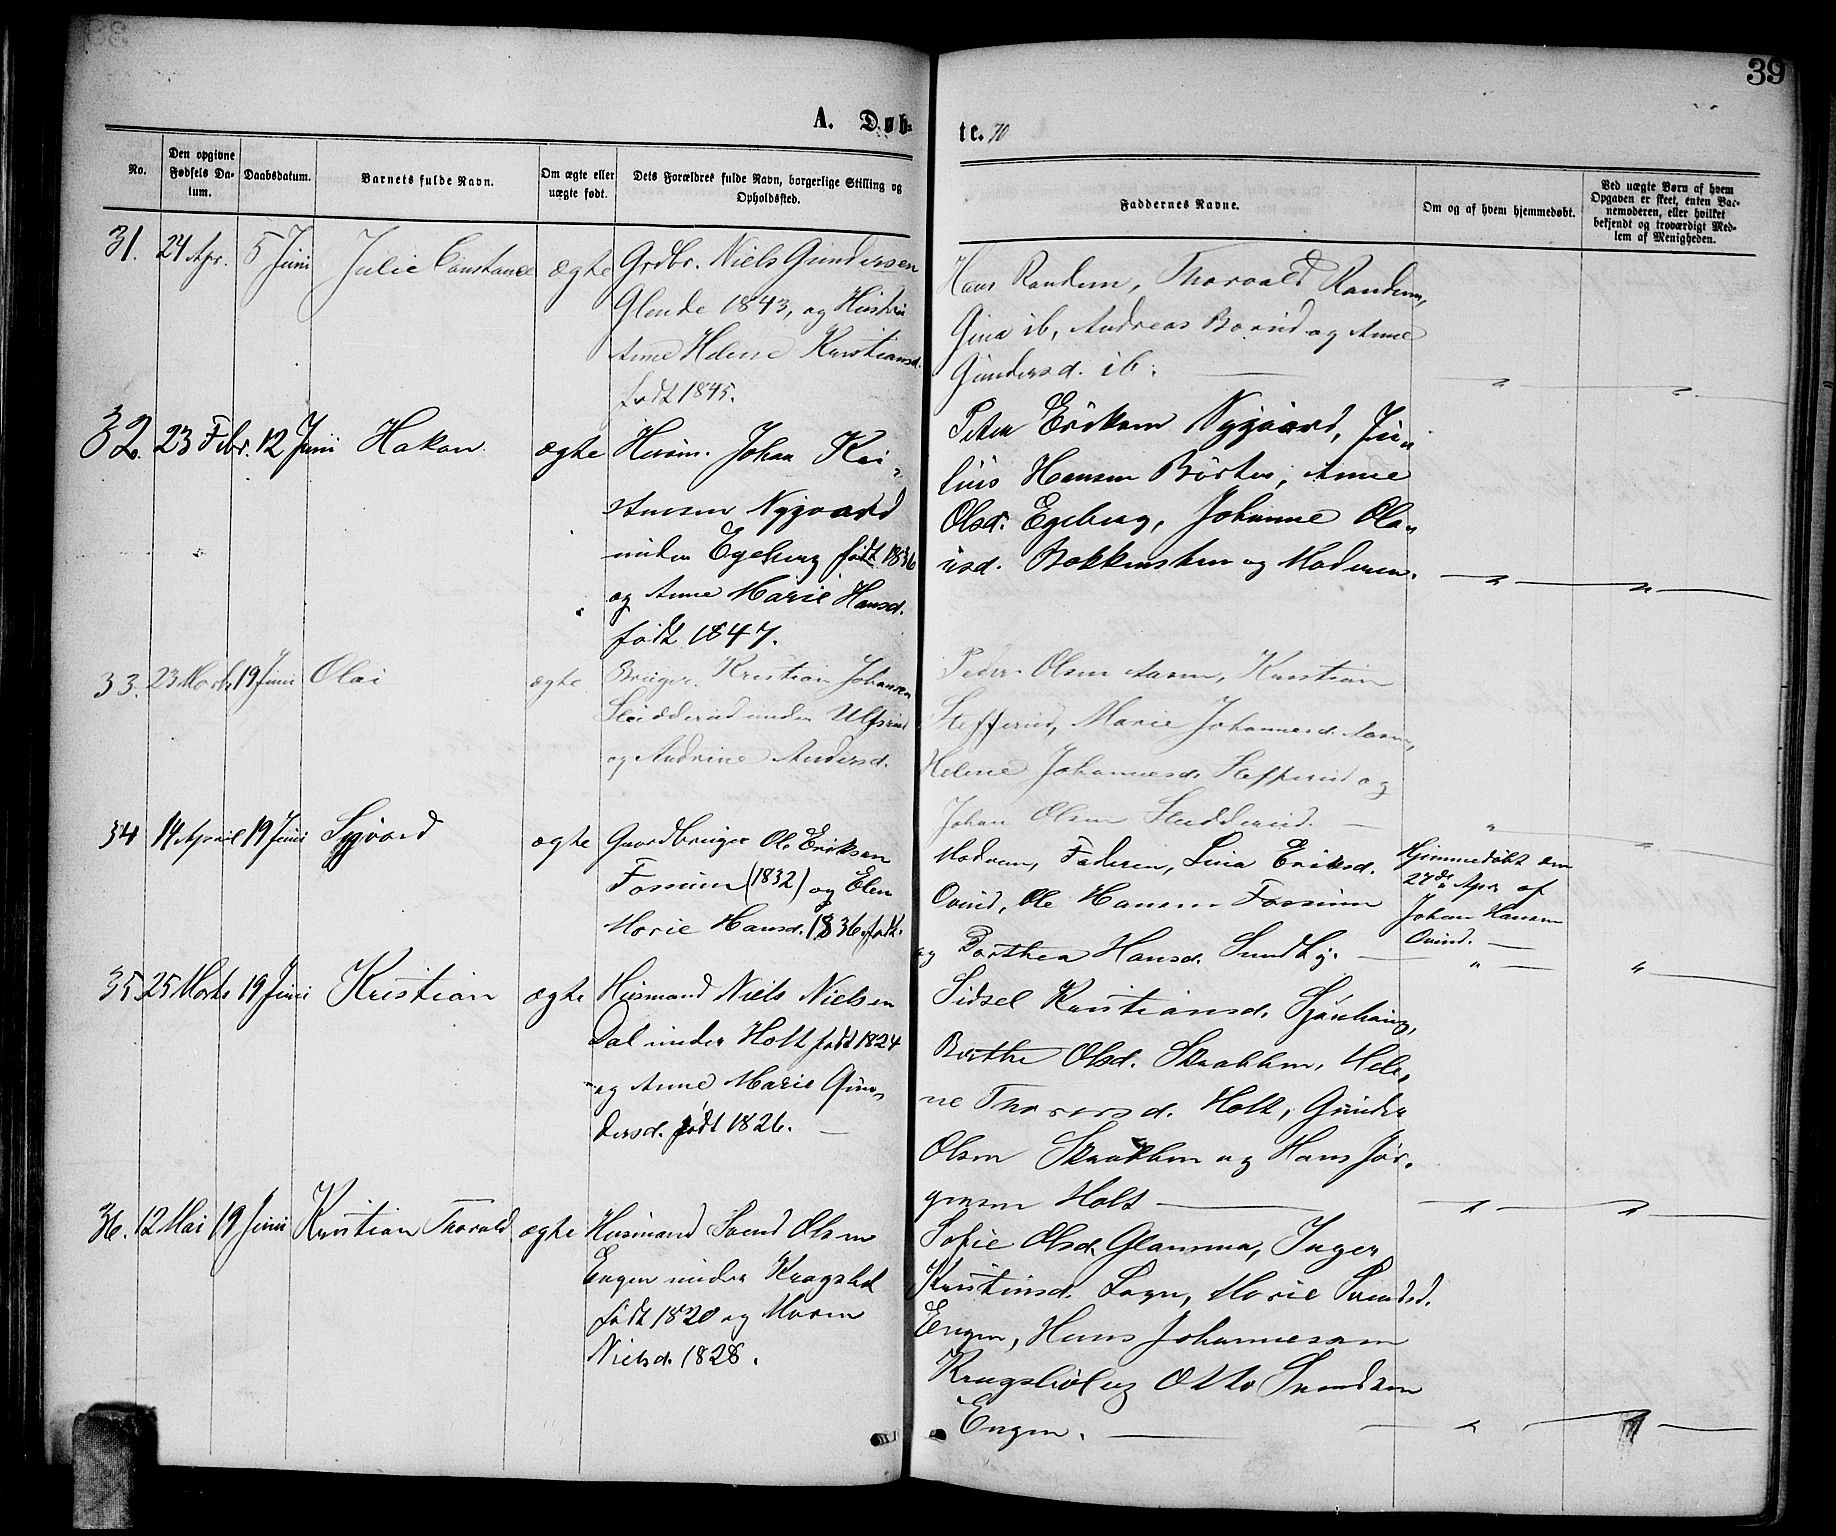 39
A. Døb-
te. 70
No.
Den opgivne Fødsels Da-tum.
Daabsdatum.
Barnets fulde Navn.
Om ægte eller uægte født.
Dets Forældres fulde Navn, borgerlige Stilling og Opholdssted.
Faddernes Navne.
Om og af hvem hjemmedøbt.
Ved uægte Børn af hvem Opgaven er skeet, enten Bar-nemoderen, eller hvilket bekjendt og troværdigt Med-lem af Menigheden.
31. 24 Apr. 5 Juni Julie Constance ægte Grdbr. Niels Gundersen
Glende 1843, og Hustru
Anne Helene Kristiansd.
født 1845.
Hans Randem, Thorvald Randem,
Gina ib, Andreas Borud og Anne
Gundersd. ib.
32. 23 Febr. 12 Juni Hakon. ægte Husm. Johan Kri-
stiansen Nygaard
under Egeberg født 1836
og Anne Marie Hansd.
født 1847.
Peter Eriksen Nygaard, Ju-
lius Hansen Børter, Anne
Olsd. Egeberg, Johanne Ola-
usd. Bakkensten og Moderen.
33. 23 Marts 19 Juni Olai ægte Bruger Kristian Johansen
Sludderud under Ulfsrud
og Andrine Andersd.
Peder Olsen Aasen, Kristian
Stefferud, Marie Johannesd. Aasen,
Helene Johannesd. Stefferud og
Johan Olsen Sludderud.
34 14 April 19 Juni Sygvard ægte Gaardbruger Ole Eriksen
Fossum (1832) og Elen
Marie Hansd. 1836 født.
Modren, Faderen, Lina Eriksd.
Ovind, Ole Hansen Fossum
og Dorthea Hansd. Sundby.
Hjemmedøbt den
27de Apr. af
Johan Hansen
Ovind.
35. 25 Marts 19 Juni Kristian ægte Husmand Niels Nielsen
Dal under Holt født 1824
og Anne Marie Gun-
dersd. født 1826.
Sidsel Kristiansd. Sjønhaug,
Berthe Olsd. Skrabben, Hele-
ne Thorersd. Holt, Gunder
Olsen Skrabben og Hans Jør-
gensen Holt
36. 12 Mai 19 Juni Kristian Thorvald ægte Husmand Svend Olsen
Engen under Kragsbøl
født 1820 og Maren
Nielsd. 1828.
Sofie Olsd. Glamma, Inger
Kristinsd. Sogn, Marie Svendsd.
Engen, Hans Johannesen
Kragsbøl og Otto Svendsen
Engen.